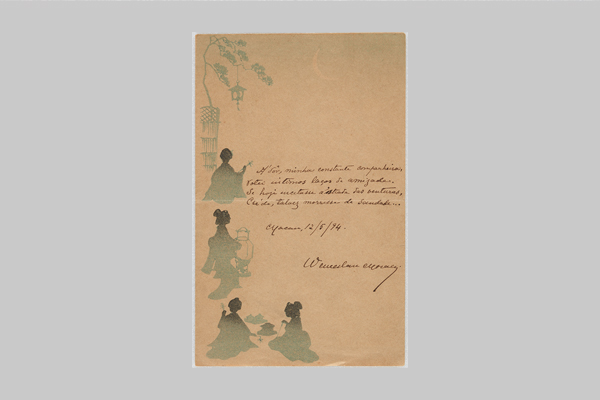 A Dôr, minha constante companheira,
votei internos laços de amizade.
Se hoje m'estrada das venturas,
Cedo, talvez morresse de Saudade...
Macau, 12/5/94.
Wenceslau de Moraes